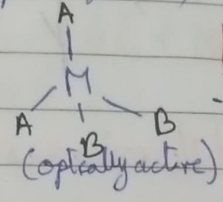 A
M
A B B
(optically active)